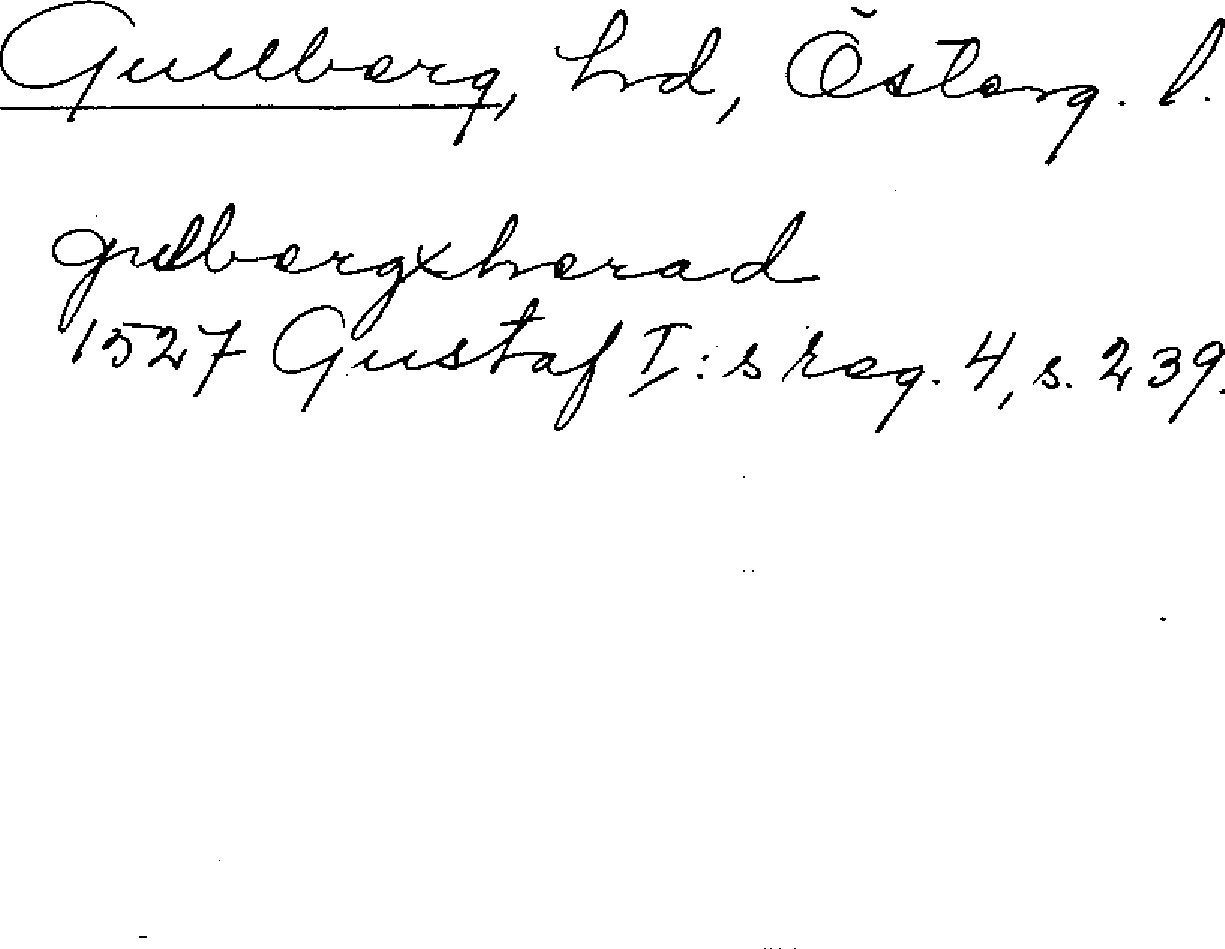 Gullberg, hd, Österg. l.
gulbergxherad
1527 Gustaf I:s reg. 4, s. 239.